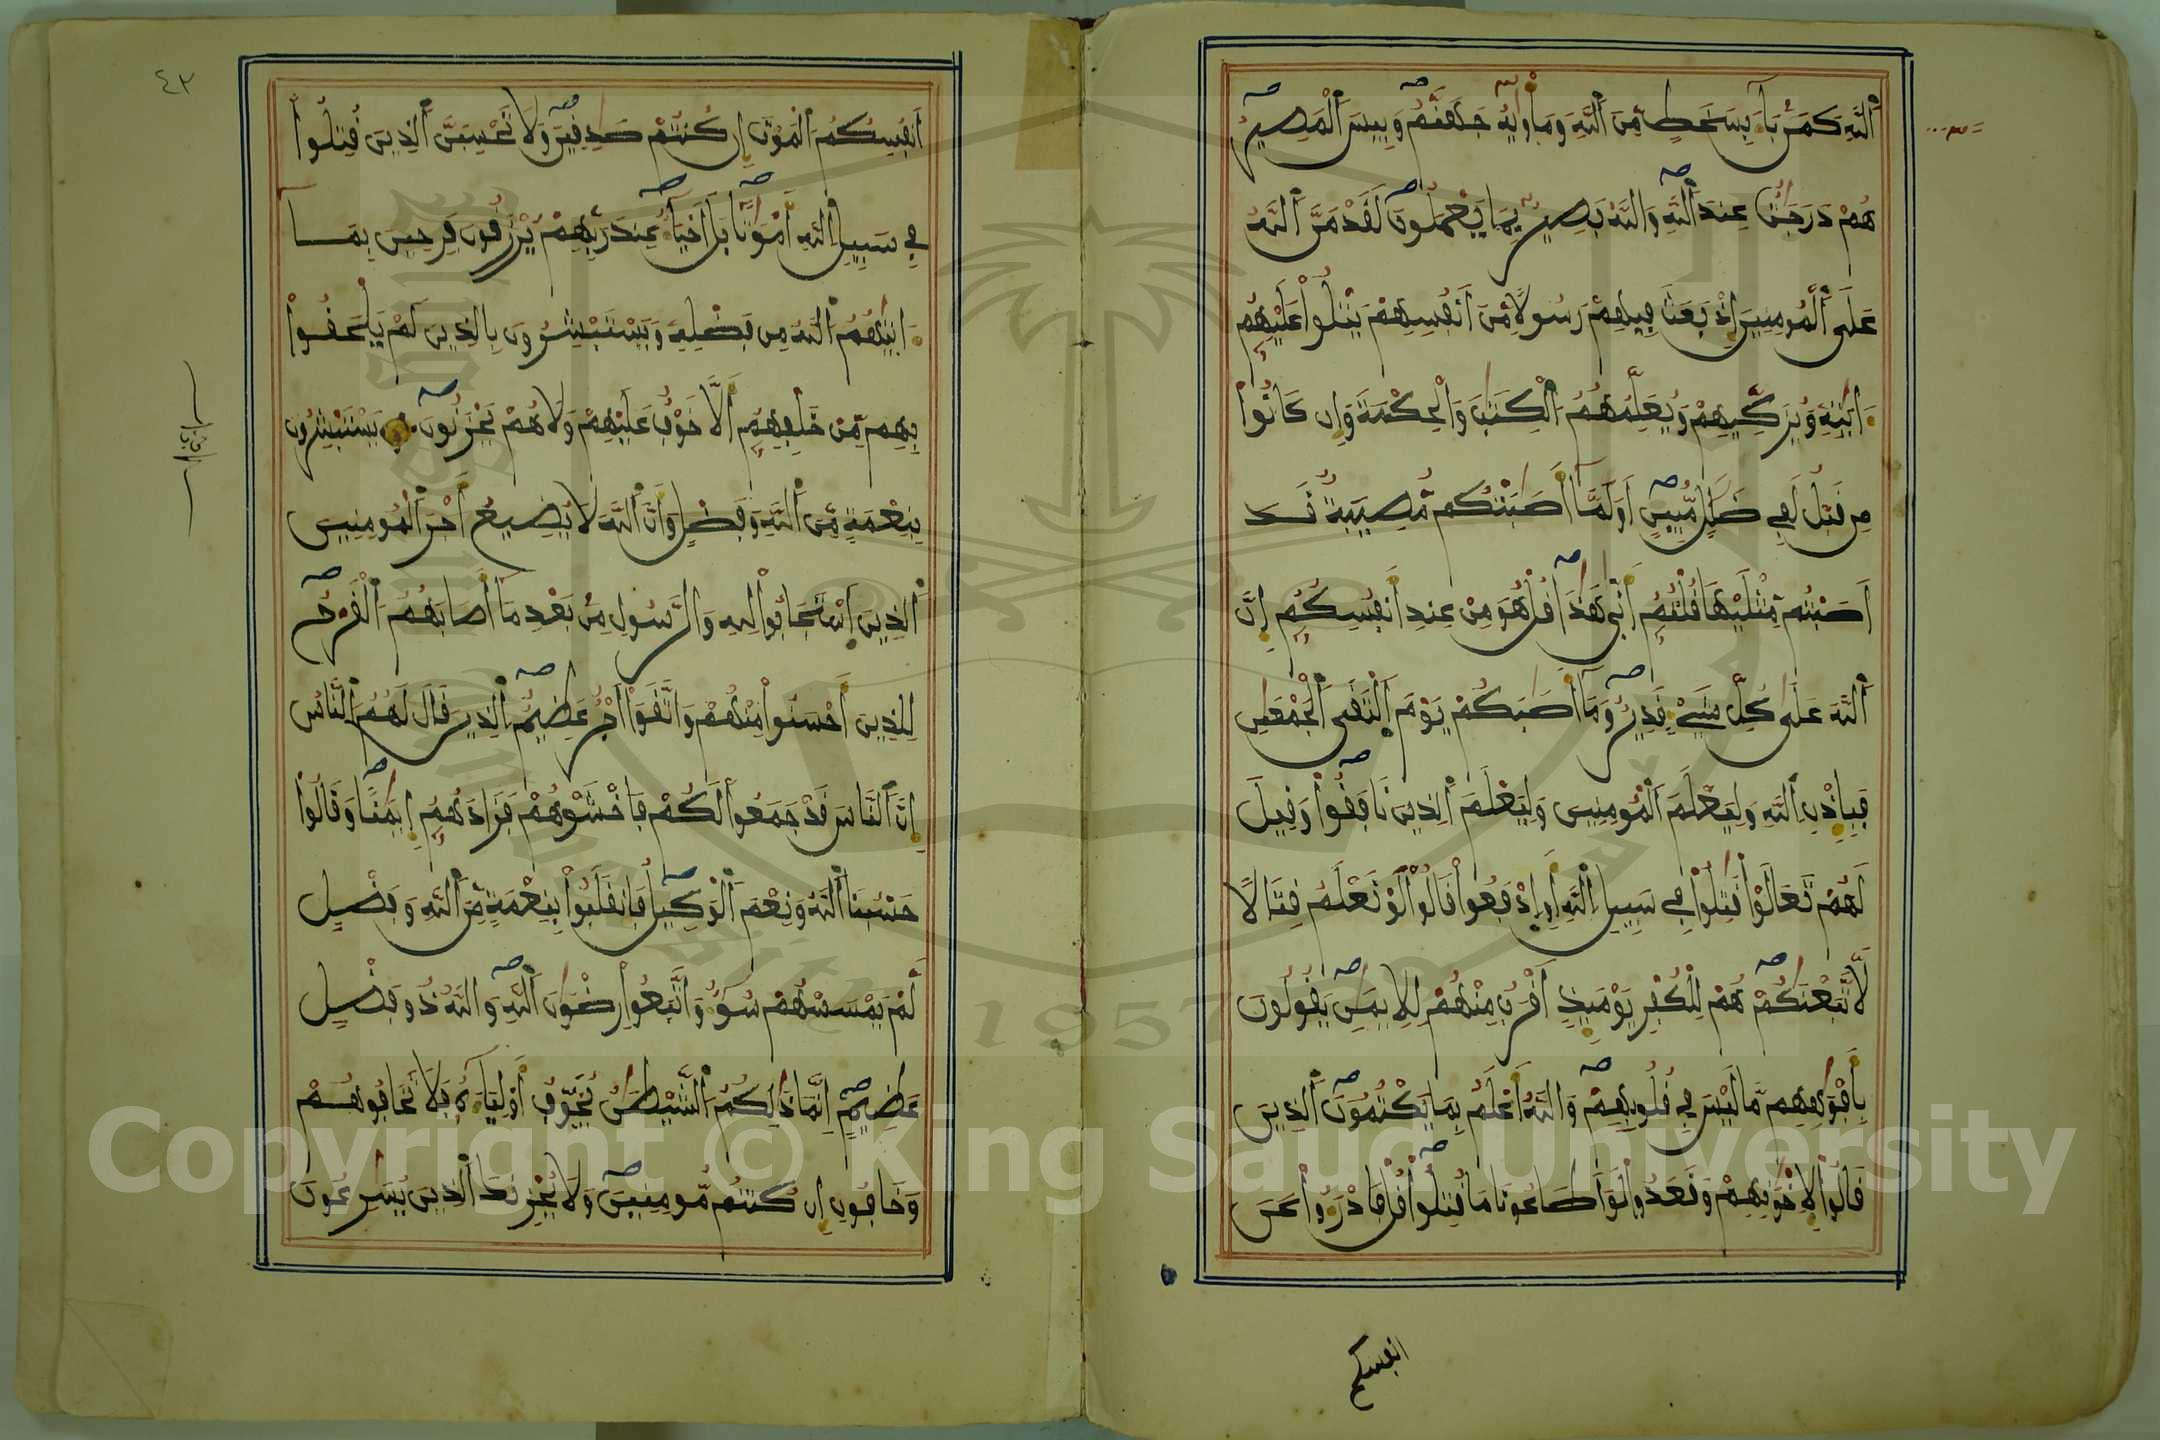 اللَّهِ كَمَنۢ بَآءَ بِسَخَطٍ مِّنَ اَللَّهِ وَمَأْوِيٰهُ جَهَنَّمُ وَبِيسَ اَلْمَصِيرُ
هُمْ دَرَجَٰتٌ عِندَ اَللَّهِ وَاللَّهُ بَصِيرٌۢ بِمَا يَعْمَلُونَ لَقَدْ مَنَّ اَللَّهُ
عَلَى اَلْمُومِنِينَ إِذْ بَعَثَ فِيهِمْ رَسُولًا مِّنَ اَنفُسِهِمْ يَتْلُوا۟ عَلَيْهِمُ
ءَايَٰتِهِ وَيُزَكِّيهِمْ وَيُعَلِّمُهُمُ اَلْكِتَٰبَ وَالْحِكْمَةَ وَإِن كَانُوا۟
مِن قَبْلُ لَفِى ضَلَٰلٍ مُّبِينٍ اَوَلَمَّآ أَصَٰبَتْكُم مُّصِيبَةٌ قَد
اَصَبْتُم مِّثْلَيْهَا قُلْتُمُ أَنّٰى هَٰذَا قُلْ هُوَ مِنْ عِندِ أَنفُسِكُمُ إِنَّ
اَللَّهَ عَلَىٰ كُلِّ شَىْءٍ قَدِيرٌ وَمَآ أَصَٰبَكُمْ يَوْمَ اَلْتَقَى اَلْجَمْعَٰنِ
فَبِإِذْنِ اِللَّهِ وَلِيَعْلَمَ اَلْمُومِنِينَ وَلِيَعْلَمَ اَلذِينَ نَافَقُوا۟ وَقِيلَ
لَهُمْ تَعَالَوْا۟ قَٰتِلُوا۟ فِى سَبِيلِ اِللَّهِ أَوِ اِدْفَعُوا۟ قَالُوا۟ لَوْ نَعْلَمُ قِتَالًا
لَّاتَّبَعْنَٰكُمْ هُمْ لِلْكُفْرِ يَوْمَئِذٍ أَقْرَبُ مِنْهُمْ لِلِايمَٰنِ يَقُولُونَ
بِأَفْوَٰهِهِم مَّا لَيْسَ فِى قُلُوبِهِمْ وَاللَّهُ أَعْلَمُ بِمَا يَكْتُمُونَ اَلذِينَ
قَالُوا۟ لِإِخْوَٰنِهِمْ وَقَعَدُوا۟ لَوَ اَطَاعُونَا مَا قُتِلُوا۟ قُلْ فَادْرَءُوا۟ عَنَ
انفسكم
٤٣
اَنفُسِكُمُ اَلْمَوْتَ إِن كُنتُمْ صَٰدِقِينَ وَلَا تَحْسِبَنَّ اَلذِينَ قُتِلُوا۟
فِى سَبِيلِ اِللَّهِ أَمْوَٰتًۢا بَلَ اَحْيَآءٌ عِندَ رَبِّهِمْ يُرْزَقُونَ فَرِحِينَ بِمَا
ءَاتَيٰهُمُ اُللَّهُ مِن فَضْلِهِ وَيَسْتَبْشِرُونَ بِالذِينَ لَمْ يَلْحَقُوا۟
بِهِم مِّنْ خَلْفِهِمُ أَلَّا خَوْفٌ عَلَيْهِمْ وَلَا هُمْ يَحْزَنُونَ يَسْتَبْشِرُونَ
بِنِعْمَةٍ مِّنَ اَللَّهِ وَفَضْلٍ وَأَنَّ اَللَّهَ لَا يُضِيعُ أَجْرَ اَلْمُومِنِينَ
اَلذِينَ اَسْتَجَابُوا۟ لِلهِ وَالرَّسُولِ مِنۢ بَعْدِ مَآ أَصَابَهُمُ اُلْقَرْحُ
لِلذِينَ أَحْسَنُوا۟ مِنْهُمْ وَاتَّقَوَا۟ اَجْرٌ عَظِيمٌ اَلذِينَ قَالَ لَهُمُ اُلنَّاسُ
إِنَّ اَلنَّاسَ قَدْ جَمَعُوا۟ لَكُمْ فَاخْشَوْهُمْ فَزَادَهُمُ إِيمَٰنًا وَقَالُوا۟
حَسْبُنَا اَللَّهُ وَنِعْمَ اَلْوَكِيلُ فَانقَلَبُوا۟ بِنِعْمَةٍ مِّنَ اَللَّهِ وَفَضْلٍ
لَّمْ يَمْسَسْهُمْ سُوٓءٌ وَاتَّبَعُوا۟ رِضْوَٰنَ اَللَّهِ وَاللَّهُ ذُو فَضْلٍ
عَظِيمٍ اِنَّمَا ذَٰلِكُمُ اُلشَّيْطَٰنُ يُخَوِّفُ أَوْلِيَآءَهُ فَلَا تَخَافُوهُمْ
وَخَافُونِ إِن كُنتُم مُّومِنِينَ وَلَا يُحْزِنكَ اَلذِينَ يُسَٰرِعُونَ
Copyright © King Saud University
1957